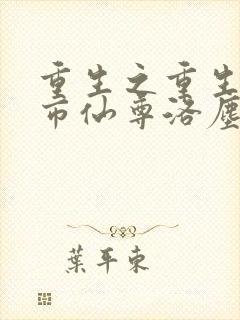 重生之重生
市仙尊洛塵
葉平東